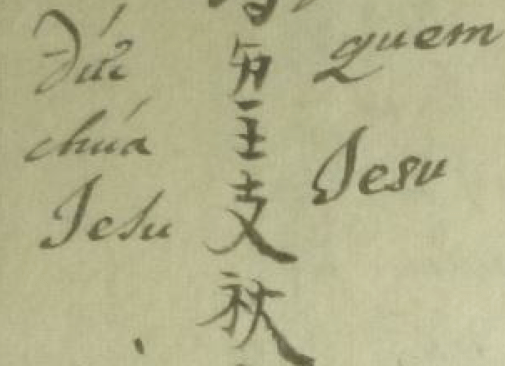 Đức
chúa
Jesu
主支
quem
Jesu